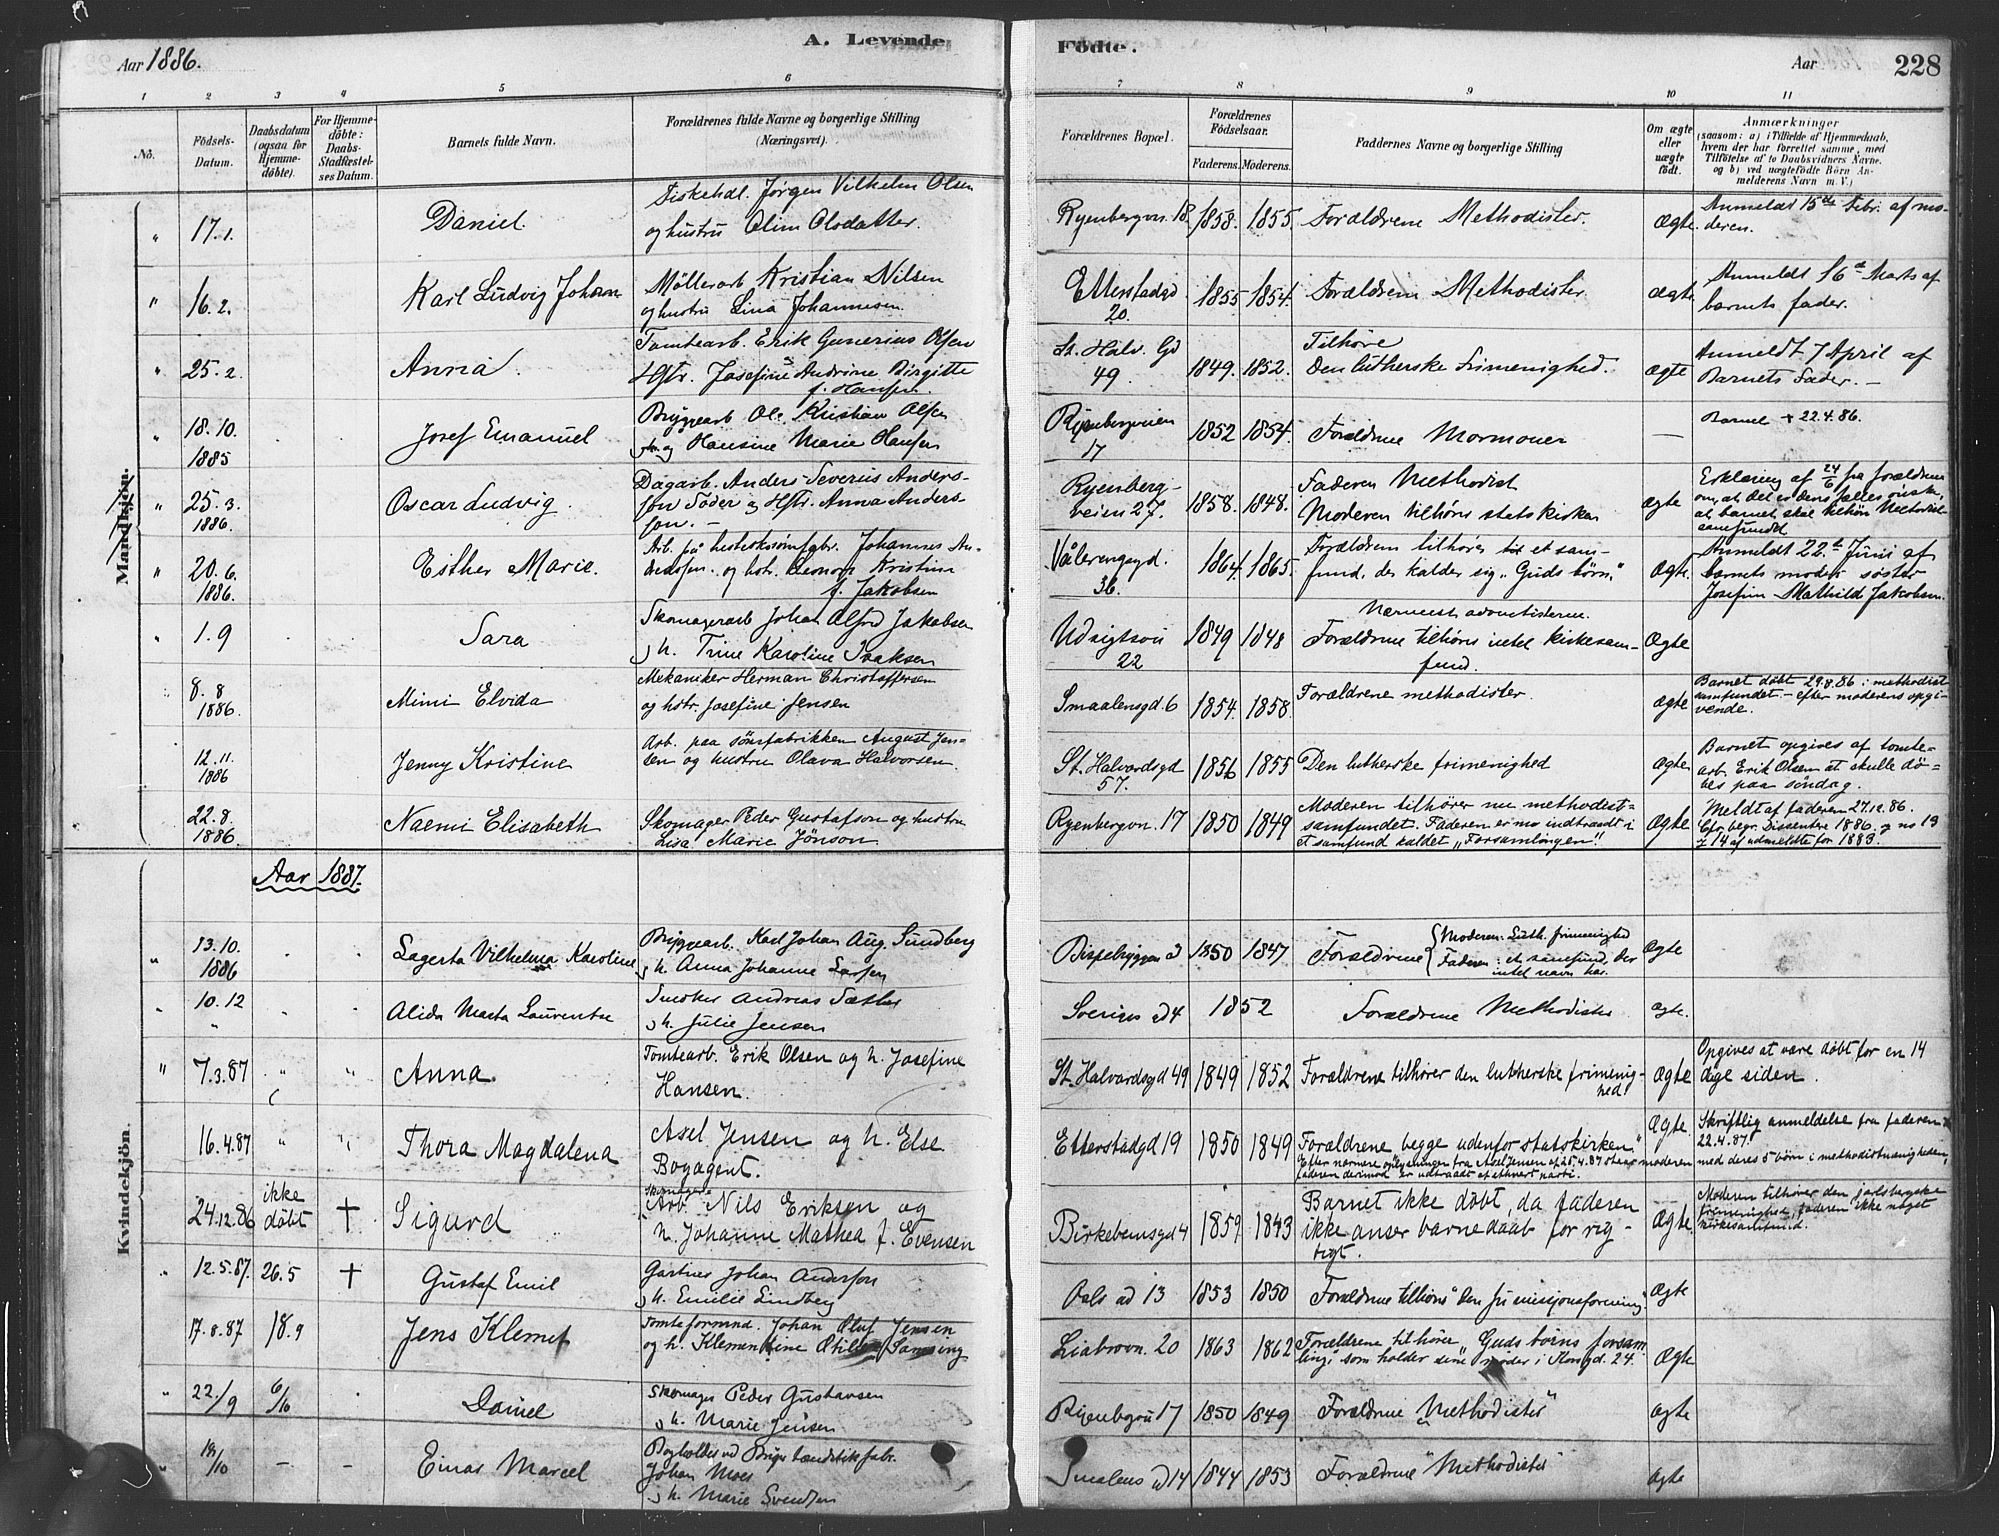 Aar 1886.
A. Levende
Födte.
Aar
228
1 2 3 4 5 6 7 8 9 10 11
No.
Födsels-Datum.
Daabsdatum (ogsaa for Hjemme-döbte).
For Hjemme-döbte: Daabs-Stadfæstel-ses Datum.
Barnets fulde Navn.
Forældrenes fulde Navne og borgerlige Stilling (Næringsvei).
Forældrenes Bopæl.
Forældrenes Födselsaar.
Faderens. Moderens.
Faddernes Navne og borgerlige Stilling
Om ægte eller uægte födt.
Anmærkninger
(saasom: a) i Tilfælde af Hjemmedaab, hvem der har forrettet samme, med Tilföielse af to Daabsvidners Navne. og b) ved uægtefödte Börn Anmelderens Navn m. V.)
Mandkjön.
" 17.1. Daniel. Fiskehdl. Jørgen Vilhelm Olsen og hustru Olim Olsdatter Ryenbergvn. 18. 1858. 1855. Forældrene Methodister. Ægte. Anmeldt 15de Febr. af moderen.
" 16.2. Karl Ludvig Johan Møllerarb Kristian Nilsen og hustru Lina Johannesen. Etterstadgd 20. 1855 1854. Forældrene Methodister. Ægte Anmeldt 16d Marts af barnets fader.
" 25.2. Anna. Tomtearb. Erik Gunerius Olsen Hstr. Josefine Andrine Birgitte f. Hansen St. Halv. Gd 49. 1849. 1852. Tilhøre Den lutherske Frimenighed. Ægte Anmeldt 7 April af Barnets Fader. —
" 18.10. 1885 Josef Emanuel Bryggearb Ole Kristian Olsen og Hansine Marie Hansen Ryenbergveien 17 1852 1854. Forældrene Mormoner — Barnet + 22.4.86.
" 25.3. 1886. Oscar Ludvig. Dagarb. Anders Severius Andersson Soder og Hstr. Anna Andersson. — Ryenbergveien 27. 1858. 1848. Faderen Methodist Moderen tilhører statskirken Ægte Erklæring af 24/6 fra forældrene om, at det er deres fælles ønske, at barnet skal tilhøre Methodistsamfundet
" 20.6. 1886. Esther Marie. Arb. på hesteskosømfabr. Johannes Andersen. og hstr. Leonora Kristine f. Jakobsen Vålerengsgd. 36. 1864. 1865. Forældrene tilhører et samfund, der kalder sig „Guds børn." Ægte. Anmeldt 22de Juni af barnets moders søster Josefine Mathilde Jakobsen.
" 1.9 Sara Skomagerarb Johan Alfred Jakobsen h. Trine Karoline Isaksen Udsigtsvei 22 1849 1848 Nærmest adventisterne. Forældrene tilhører intet kirkesamfund. Ægte
" 8.8 1886. Mimi Elvida Mekaniker Herman Christoffersen og hstr. Josefine Jensen Smaalensgd. 6 1854. 1858. Forældrene methodister. Ægte Barnet døbt 29.8.86 i methodistsamfundet. — efter moderens opgivende.
12.11. 1886 Jenny Kristine Arb. paa sømfabrikken August Jensen og hustru Olava Halvorsen. St. Halvardsgd 57. 1856 1855 Den lutherske frimenighed Ægte Barnet opgives af tomtearb. Erik Olsen at skulle døbes paa søndag.
22.8. 1886. Naemi Elisabeth Skomager Peder Gustafson og hustru Lisa Marie Jönson Ryenbergvn. 17 1850 1849 Moderen tilhører nu methodistsamfundet. Faderen er nu indtraadt i et samfund kaldet „Forsamlingen"! Ægte Meldt af faderen 27.12.86. Cfr. begr. Dissentere 1886. og no 13 & 14 af udmeldte for 1883.
Aar 1887.
Kvindekjön.
" 13.10. 1886 Lagerta Vilhelma Karoline Bryggearb. Karl Johan Aug. Sundberg h. Anna Johanne Larsen Bispebryggen 3 1850 1847 Forældrene {Moderen: Luth. frimenighed Faderen: et samfund, der intet navn har. Ægte
" 10.12 Alida Marta Laurentse Snedker Andreas Sæther h. Julie Jensen Sveriges gd 4 1852 Forældrene Methodister ægte.
" 7.3.87 Anna Tomtearb. Erik Olsen og h. Josefine Hansen. St. Halvardsgd 49 1849 1852 Forældrene tilhører den lutherske frimenighed. Ægte Opgives at være døbt for en 14 dage siden.
16.4.87 Thora Magdalena Axel Jensen og h. Else Bogagent. Etterstadgd 19 1850 1849 Forældrene „begge udenfor statskirken" Efter nærmere oplysninger fra Axel Jensen af 25.4.87 staar moderen med deres 5 børn i methodistmenigheden, faderen derimod "er udtraadt af ethvert parti. Ægte. Skriftlig anmeldelse fra faderen 22.4.87.
24.12.86 ikke døbt † Sigurd Skomager Arb Nils Eriksen og h. Johanne Mathea f. Evensen Birkebeinsgd 4 1859 1843 Barnet ikke døbt, da faderen ikke anser barnedaab for rigtigt. Ægte. Moderen tilhører den jarlsbergske frimenighed, faderen ikke noget kirkesamfund.
" 12.5.87. 26.5 † Gustaf Emil Gartner Johan Anderson h. Emilie Lindberg Oslo gd 13 1853 1850 Forældrene tilhøre "den fri missionsforening" Ægte
17.8.87 18.9 Jens Klemet Tomteformnd. Johan Oluf Jensen og h. Klementine Otilde Samsing Liabrovn. 20 1863 1862 Forældrene tilhører „Guds børns forsamling" som holder sine møder i Kongd. 24. Ægte
" 22./9 6/10 Daniel Skomager Peder Gustavsen h. Marie Jensen Ryenbgvei 17 1850 1849 Forældrene „Methodister" ægte
" 18/10 – – Einar Marcel Bogholder ved Bryns tændstikfabr. Johan Moes h. Marie Svendsen Smalens gd 14 1844 1853 Forældrene "Methodister" ægte